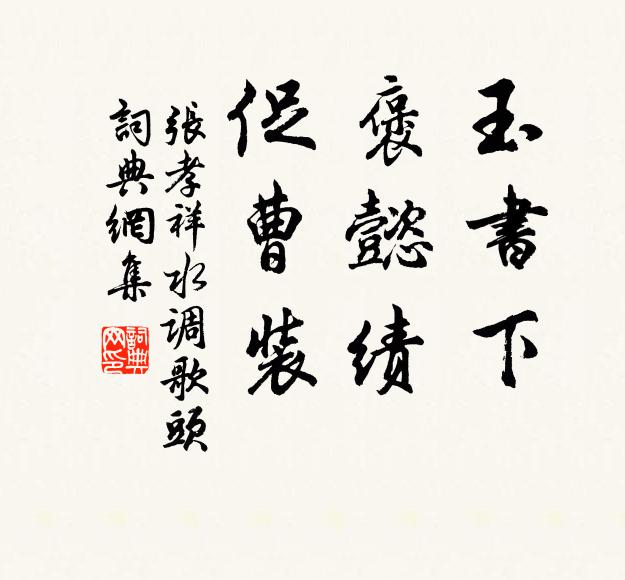 玉書下
褒懿績
促曹裝
張孝祥水调歌頭
詞典網集
詞典
网印